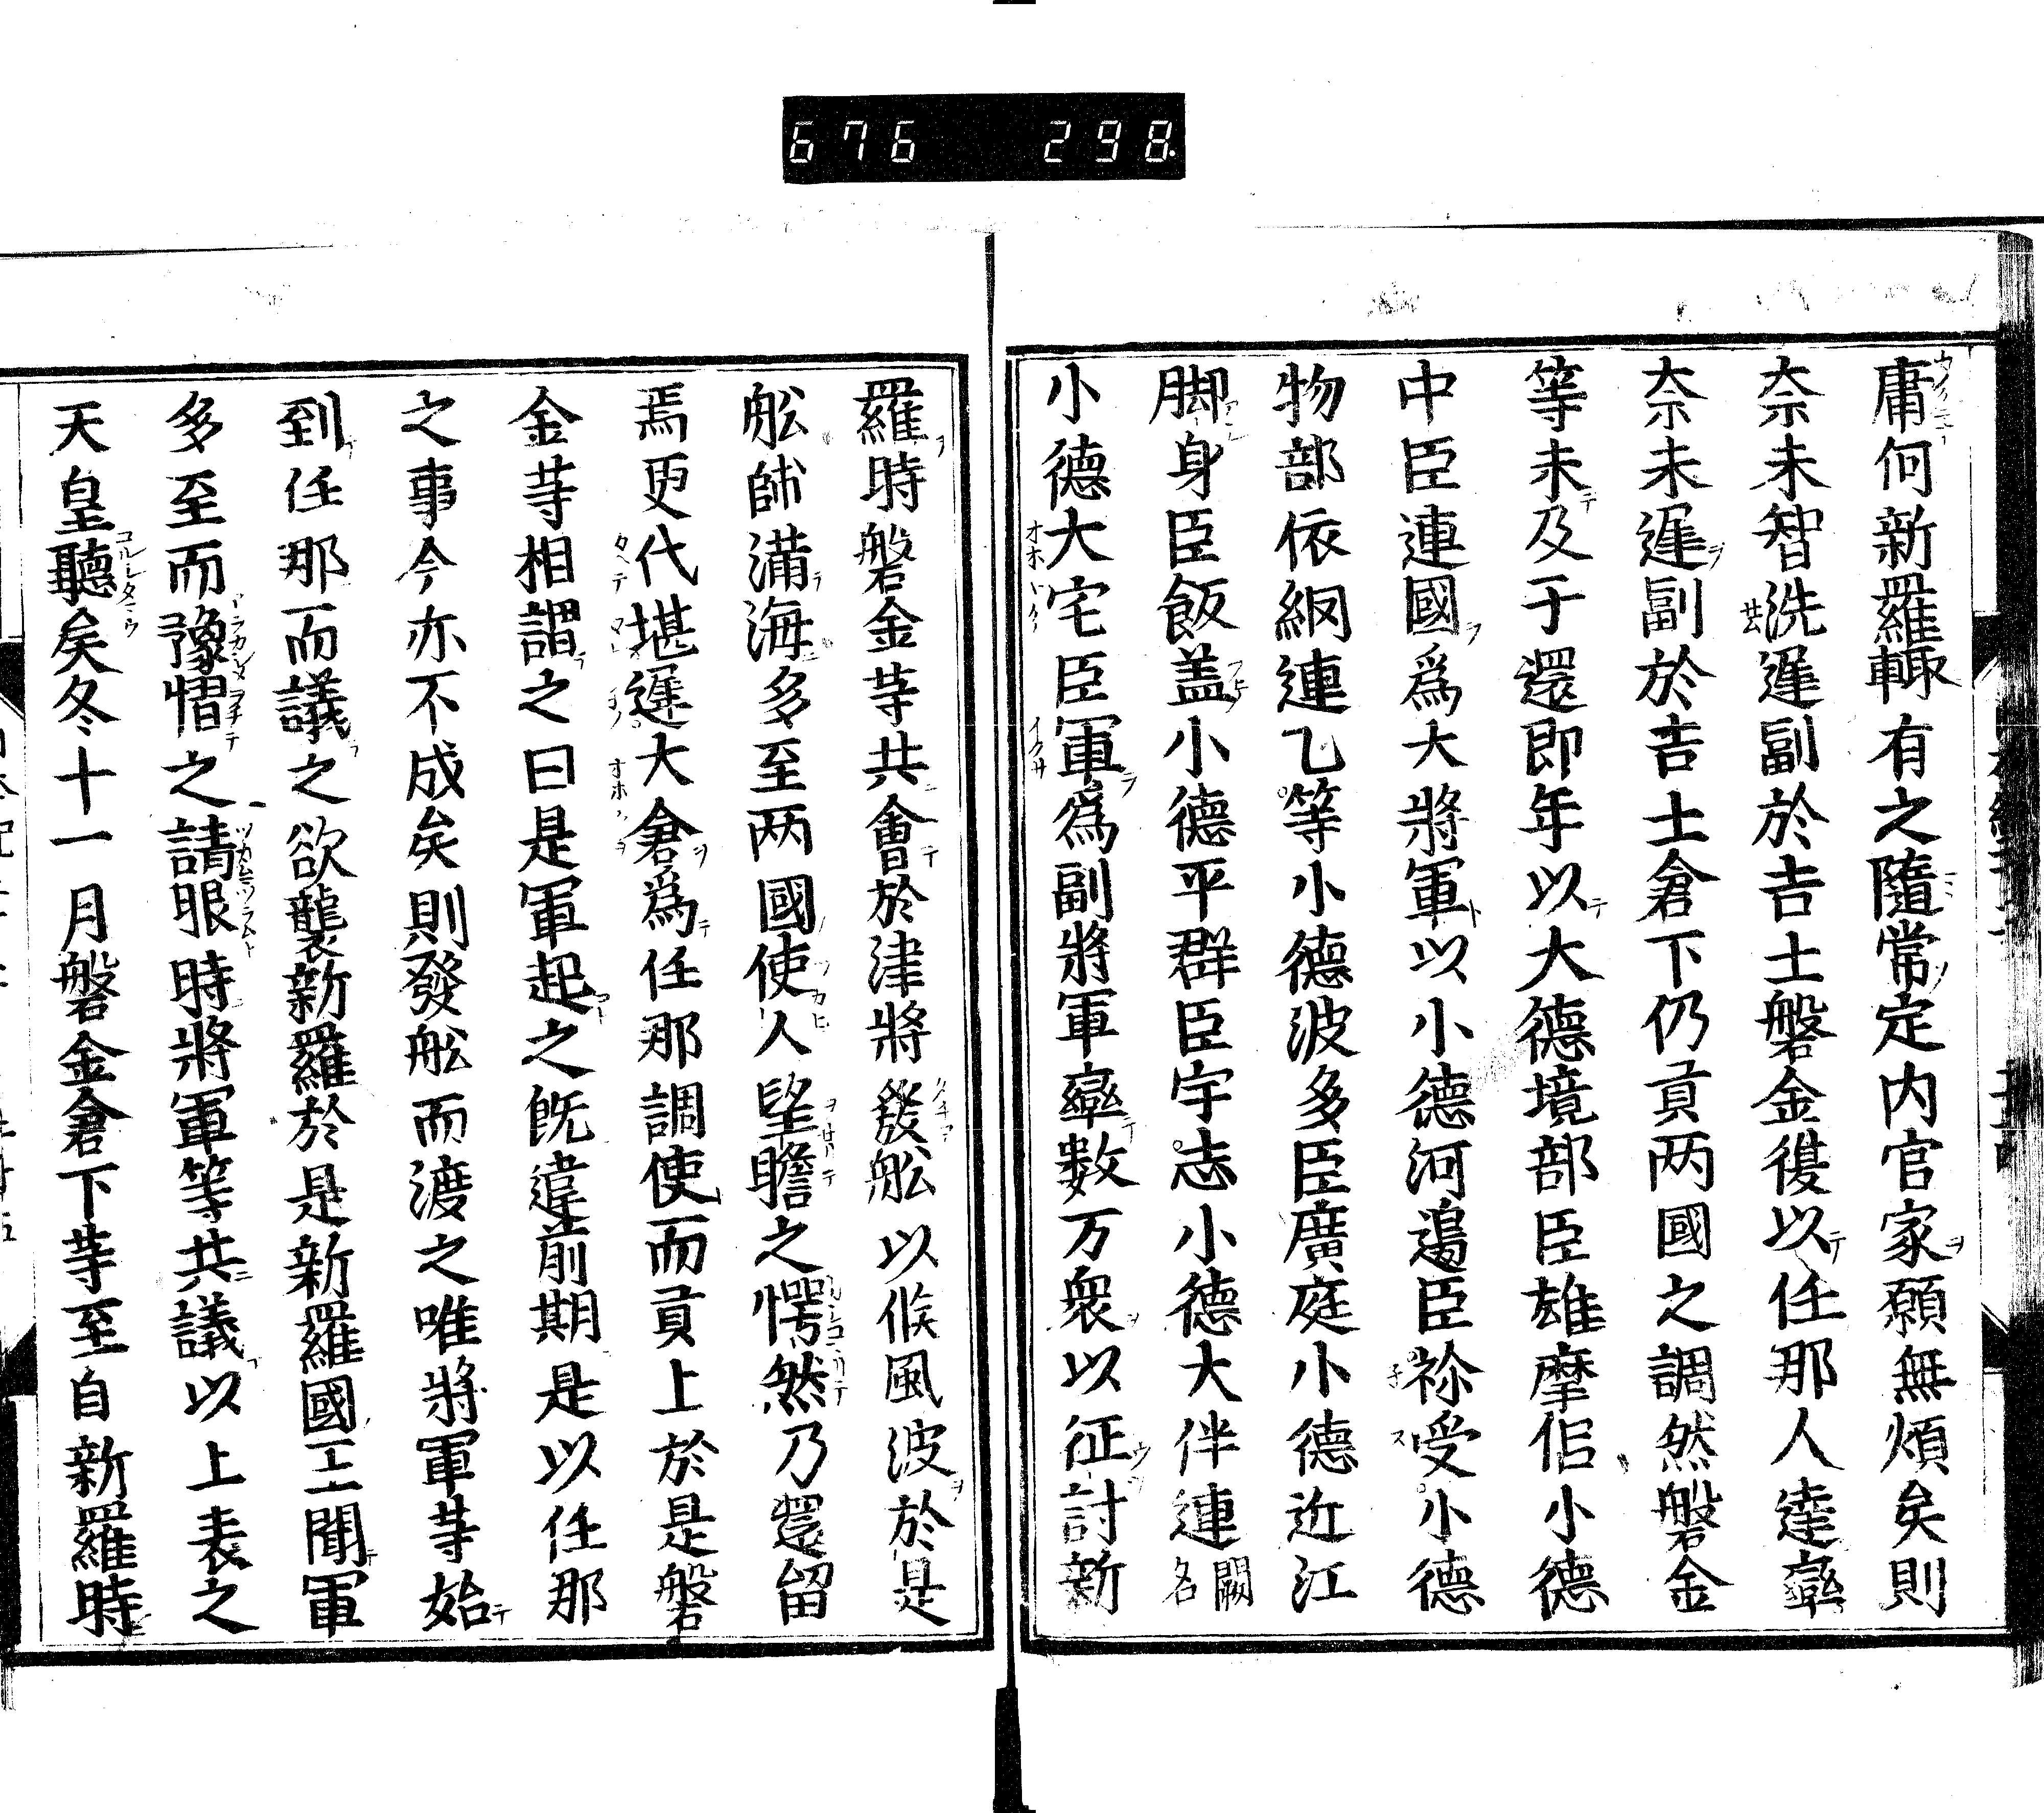 676 298
庸何新羅輙有之隨常定内官家願無煩矣則
奈未智洗遲副於吉士磐金復以任那人達率
奈未遲副於吉士倉下仍貢两國之調然磐金
等未及于還即年以大德境部臣雄摩侶小德
中臣連國爲大將軍以小德河邊臣祢受小德
物部依網連乙等小德波多臣廣庭小德近江
脚身臣飯盖小德平群臣宇志小德大伴連闕名
小德大宅臣軍爲副將軍率数万衆以征討新
羅時磐金等共會於津將發舩以候風波於是
舩師滿海多至两國使人望瞻之愕然乃還留
焉更代堪遲大倉爲任那調使而貢上於是磐
金等相謂之曰是軍起之既違前期是以任那
之事今亦不成矣則發舩而渡之唯將軍等始
到任那而議之欲襲新羅於是新羅國王聞軍
多至而豫慴之請服時將軍等共議以上表之
天皇聽矣冬十一月磐金倉下等至自新羅時